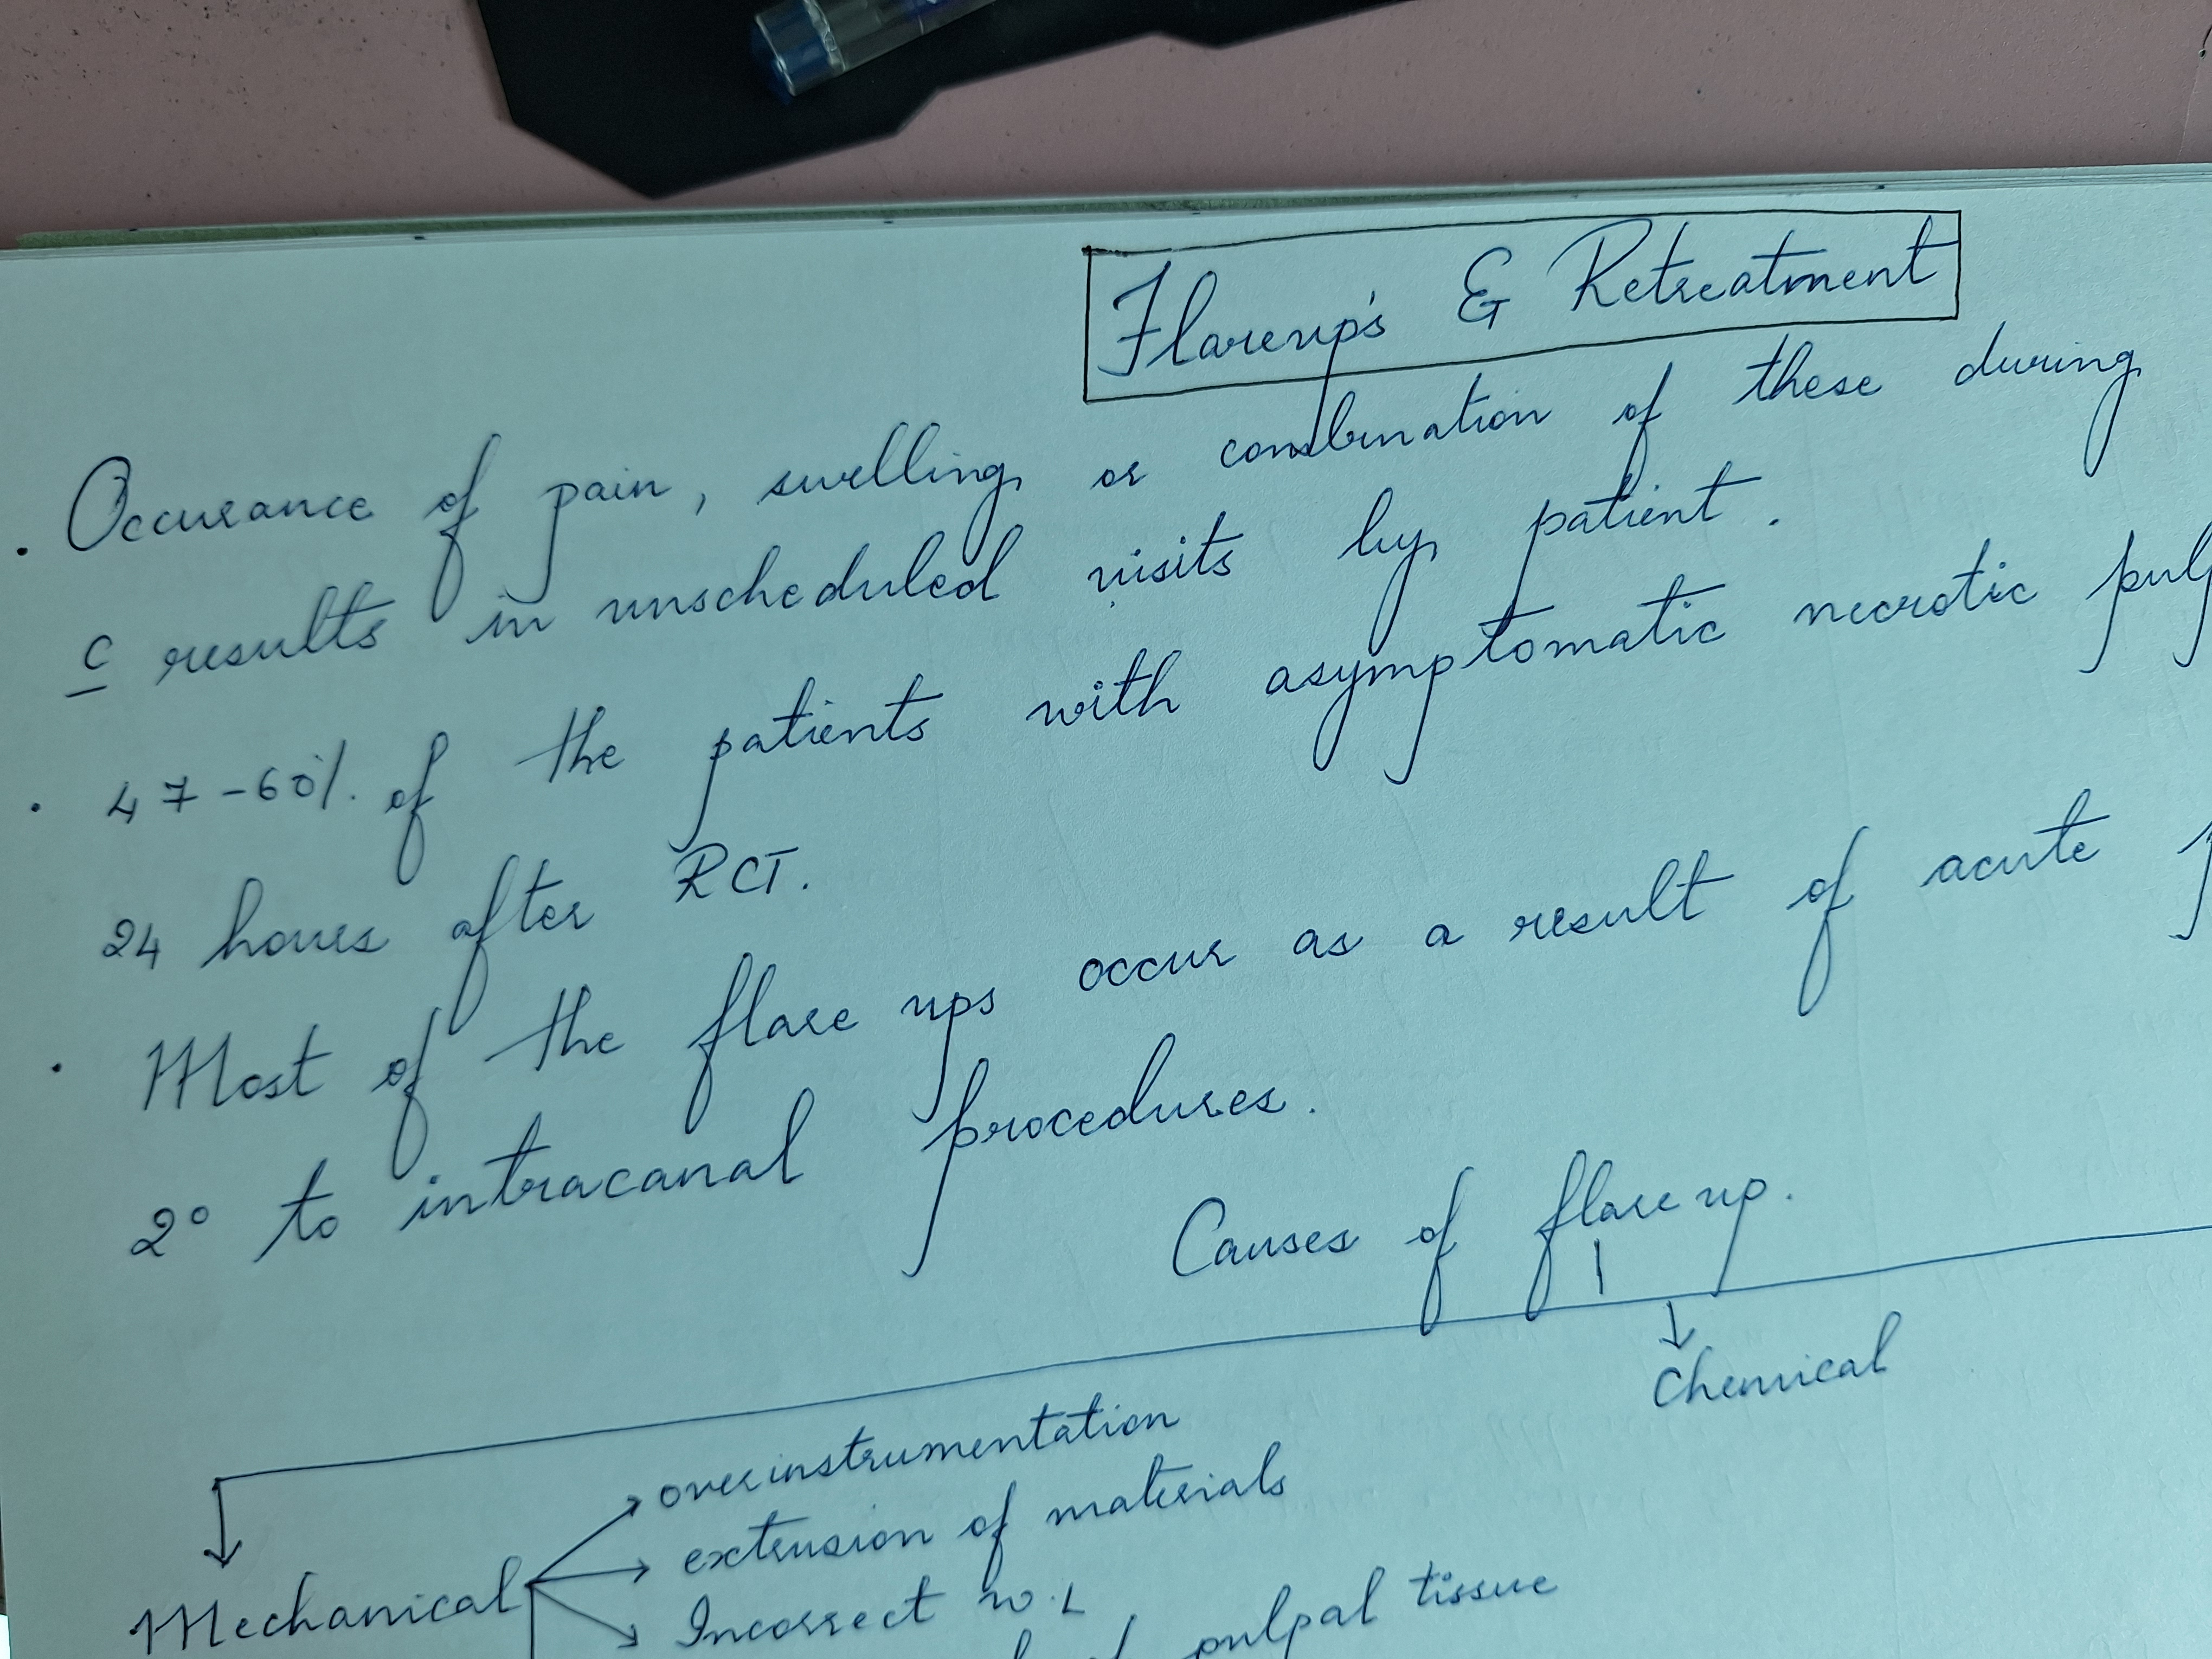 Flareup's & Retreatment
. Occurance of pain, swelling or combination of these during
c results in unscheduled visits by patient.
. 47-60% of the patients with asymptomatic necrotic
24 hours after RCT.
. Most of the flare ups occur as a result of acute
2° to intracanal procedures.
Causes of flare up.
Chemical
overinstrumentation
extension of materials
Mechanical
Incorrect W.L
pulpal tissue